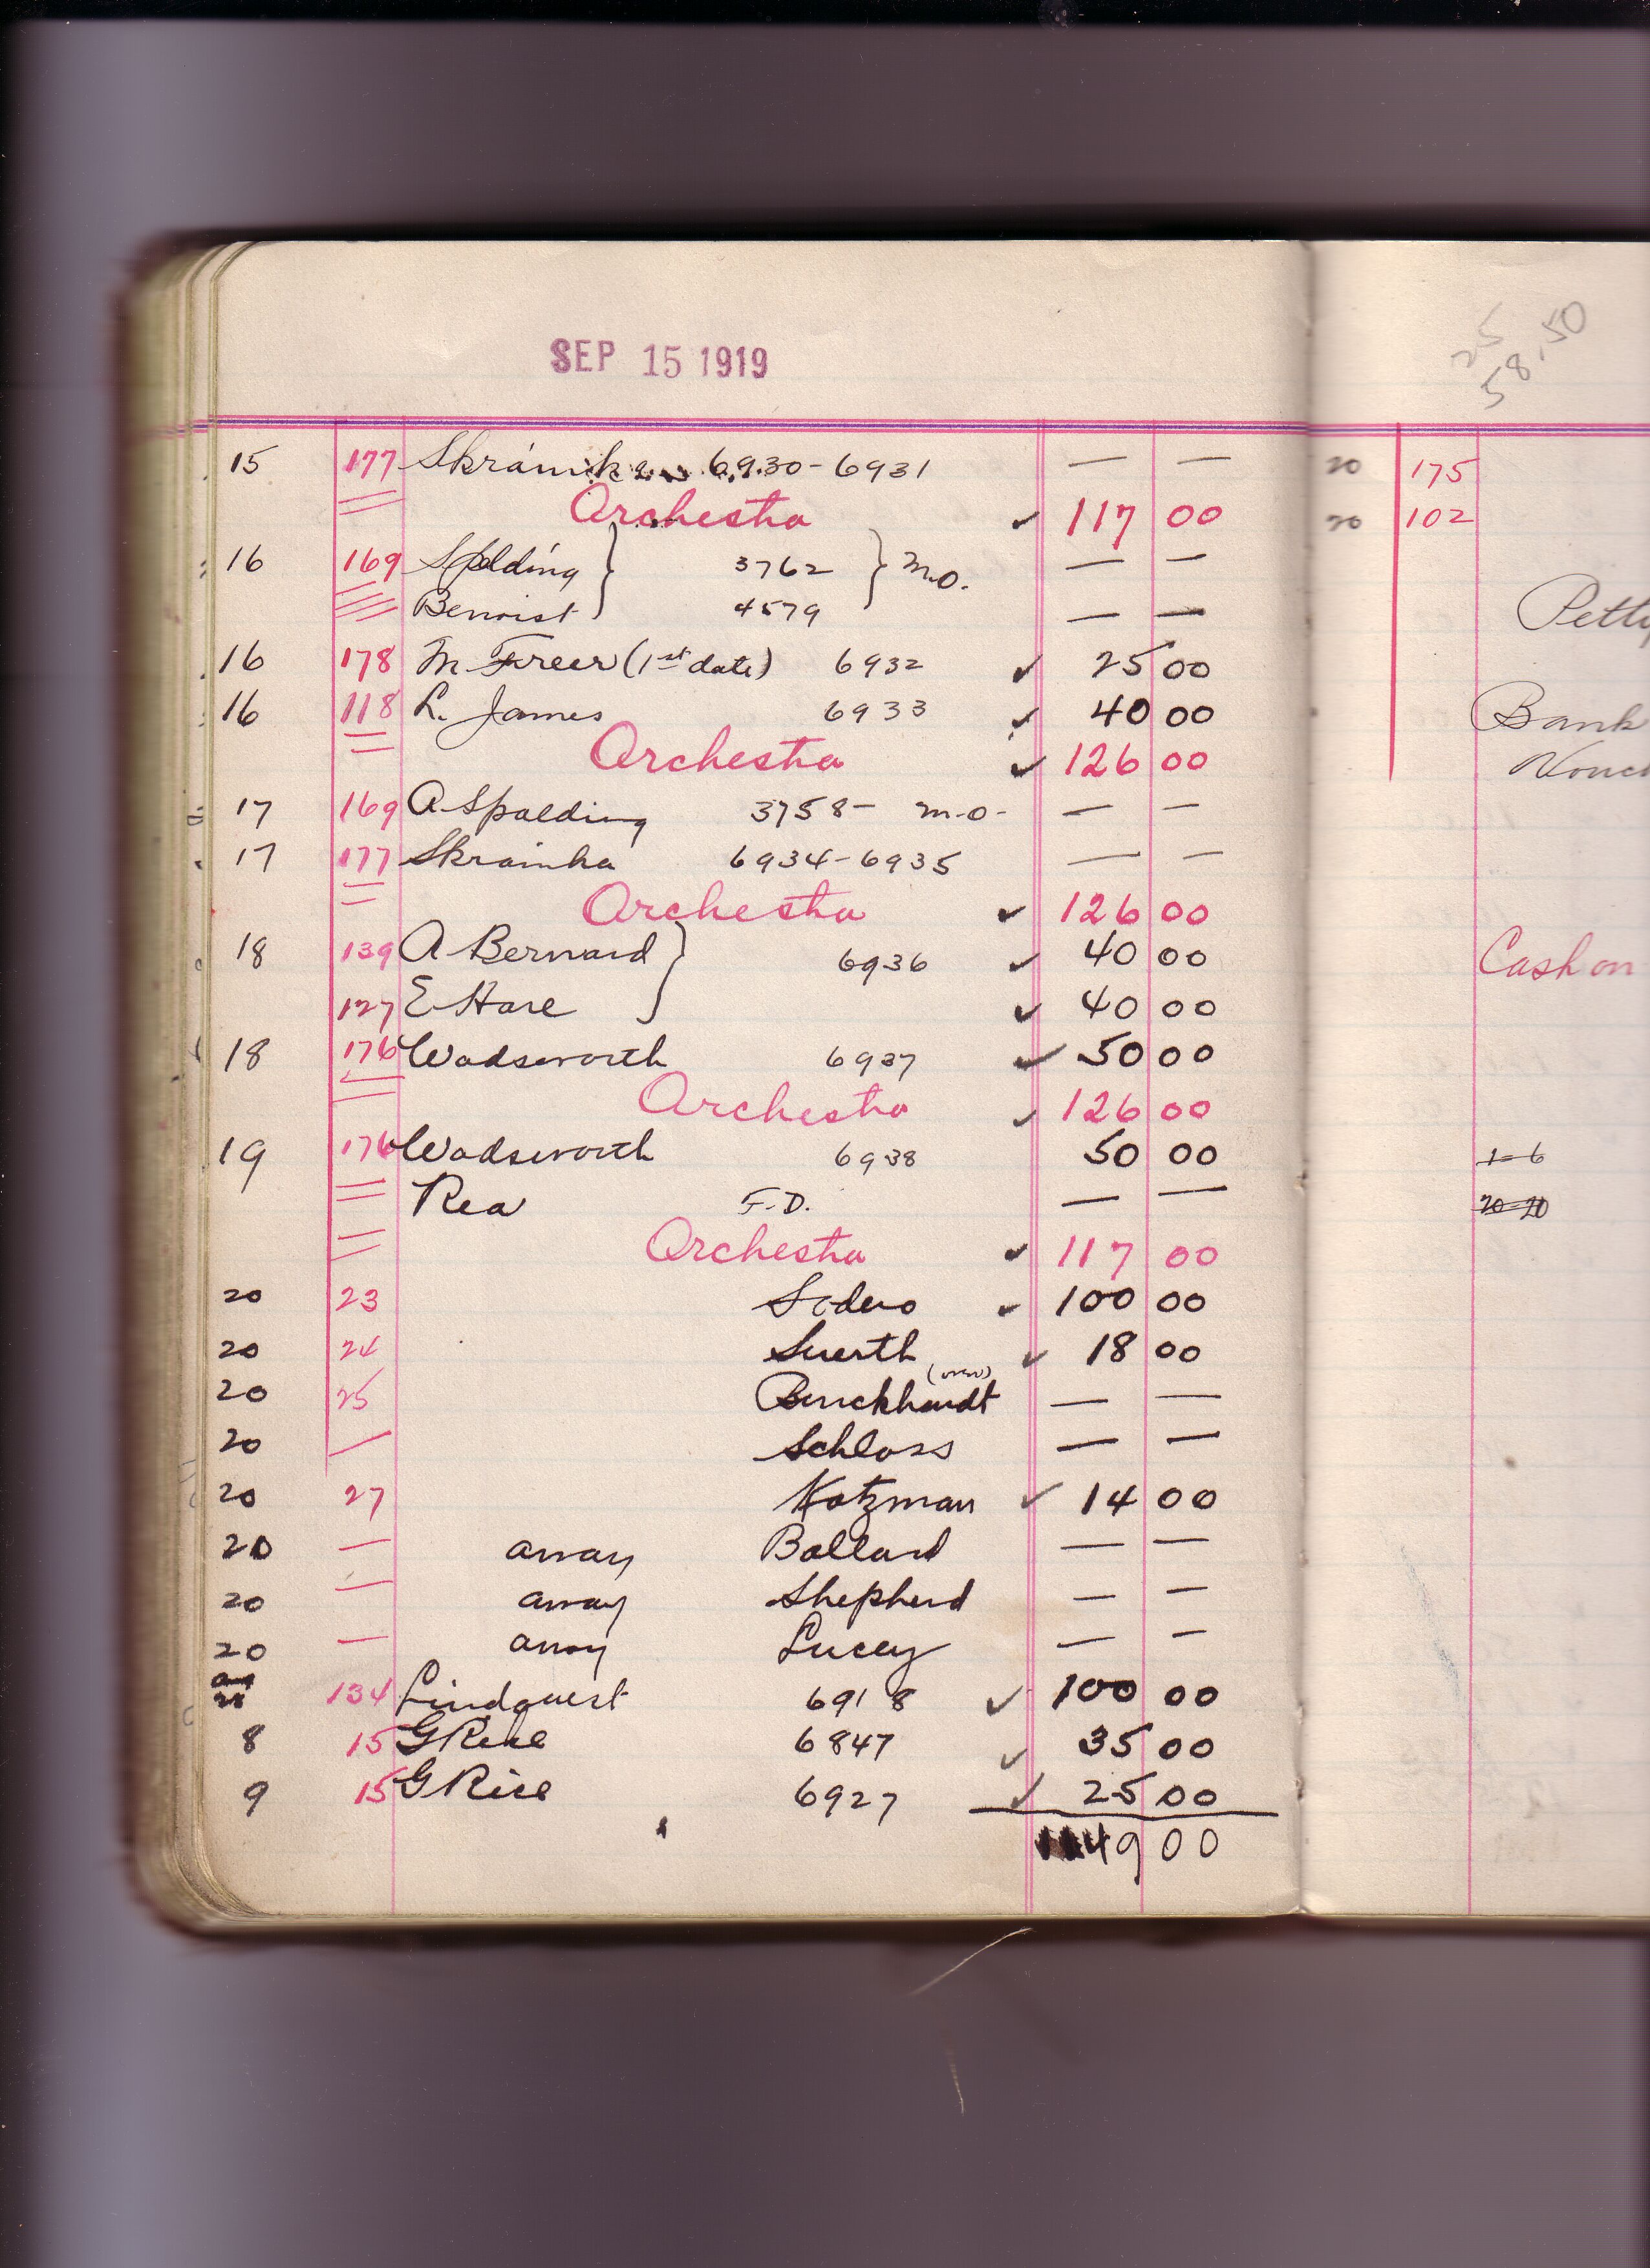 SEP 15 1919
15 177 Skrainka 6930-6931 — —
Orchestra ✓ 117 00
16 169 Spalding } 3762 } m.o. — —
Benoist 4579 — —
16 178 M Freer (1st date) 6932 ✓ 25 00
16 118 L. James 6933 ✓ 40 00
Orchestra ✓ 126 00
17 169 A Spalding 3758- m.o- — —
17 177 Skrainka 6934-6935 — —
Orchestra ✓ 126 00
18 139 A Bernard } 6936 ✓ 40 00
127 E Hare ✓ 40 00
18 176 Wadsworth 6937 ✓ 50 00
Orchestra ✓ 126 00
19 176 Wadsworth 6938 50 00
Rea F.D. — —
Orchestra ✓ 117 00
20 23 Sodero ✓ 100 00
20 24 Suerth ✓ 18 00
20 25 Burckhardt — —
20 — Schloss — —
20 27 Katzman ✓ 14 00
20 — away Ballard — —
20 — away Shepherd — —
20 — away Lucey — —
134 Lindquest 6918 ✓ 100 00
8 15 G Rice 6847 ✓ 35 00
9 15 G Rice 6927 ✓ 25 00
1149 00
25
58.50
20 175
20 102
Petty
Bank
Vouch
Cash on
1-6
20-20